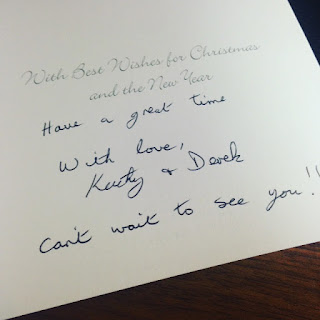 With Best Wishes for Christmas
and the New Year
Have a great time
With love,
Kathy & Derek
Can't wait to see you!!